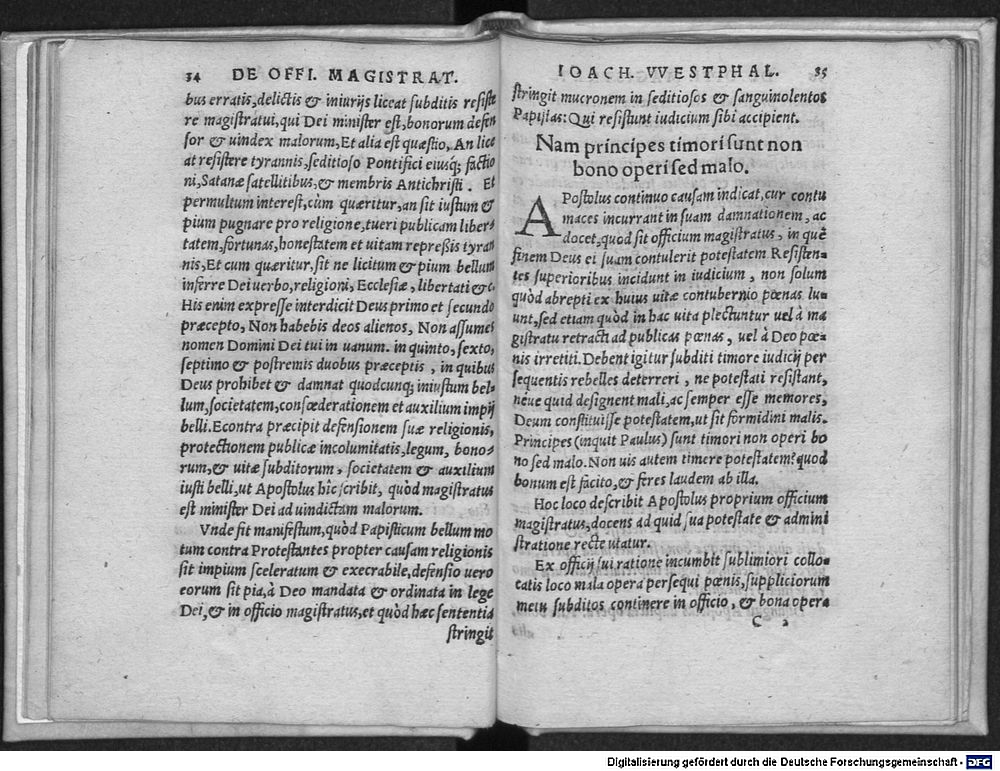 34 DE OFFI. MAGISTRAT.
bus erratis, delictis & iniurijs liceat subditis resiste
re magistratui, qui Dei minister est, bonorum defen
sor & uindex malorum, Et alia est quæstio, An lice
at resistere tyrannis, seditioso Pontifici eiusq; factio
ni, Satanæ satellitibus, & membris Antichristi. Et
permultum interest, cùm quæritur, an sit iustum &
pium pugnare pro religione, tueri publicam liber-
tatem, fortunas, honestatem et uitam repreßis tyran
nis, Et cum quæritur, sit ne licitum & pium bellum
inferre Dei uerbo, religioni, Ecclesiæ, libertati &c.
His enim expresse interdicit Deus primo et secundo
præcepto, Non habebis deos alienos, Non assumes
nomen Domini Dei tui in uanum. in quinto, sexto,
septimo & postremis duobus præceptis, in quibus
Deus prohibet & damnat quodcunq; iniustum bel-
lum, societatem, confœderationem et auxilium impij
belli. Econtra præcipit defensionem suæ religionis,
protectionem publicæ incolumitatis, legum, bono-
rum, & uitæ subditorum, societatem & auxilium
iusti belli, ut Apostolus hîc scribit, quòd magistratus
est minister Dei ad uindictam malorum.
Vnde fit manifestum, quòd Papisticum bellum mo
tum contra Protestantes propter causam religionis
sit impium sceleratum & execrabile, defensio uero
eorum sit pia, à Deo mandata & ordinata in lege
Dei, & in officio magistratus, et quòd hæc sententia
stringit
IOACH. VVESTPHAL. 35
stringit mucronem in seditiosos & sanguinolentos
Papistas: Qui resistunt iudicium sibi accipient.
Nam principes timori sunt non
bono operi sed malo.
APostolus continuo causam indicat, cur contu
maces incurrant in suam damnationem, ac
docet, quod sit officium magistratus, in quē
finem Deus ei suam contulerit potestatem Resisten-
tes superioribus incidunt in iudicium, non solum
quòd abrepti ex huius uitæ contubernio pœnas lu-
unt, sed etiam quòd in hac uita plectuntur uel à ma
gistratu retracti ad publicas pœnas, uel à Deo pœ-
nis irretiti. Debent igitur subditi timore iudicij per
sequentis rebelles deterreri, ne potestati resistant,
neue quid designent mali, ac semper esse memores,
Deum constituisse potestatem, ut sit formidini malis.
Principes (inquit Paulus) sunt timori non operi bo
no sed malo. Non uis autem timere potestatem? quod
bonum est facito, & feres laudem ab illa.
Hoc loco describit Apostolus proprium officium
magistratus, docens ad quid sua potestate & admini
stratione recte utatur.
Ex officij sui ratione incumbit sublimiori collo-
catis loco mala opera persequi pœnis, suppliciorum
metu subditos continere in officio, & bona opera
C 2
Digitalisierung gefördert durch die Deutsche Forschungsgemeinschaft - DFG